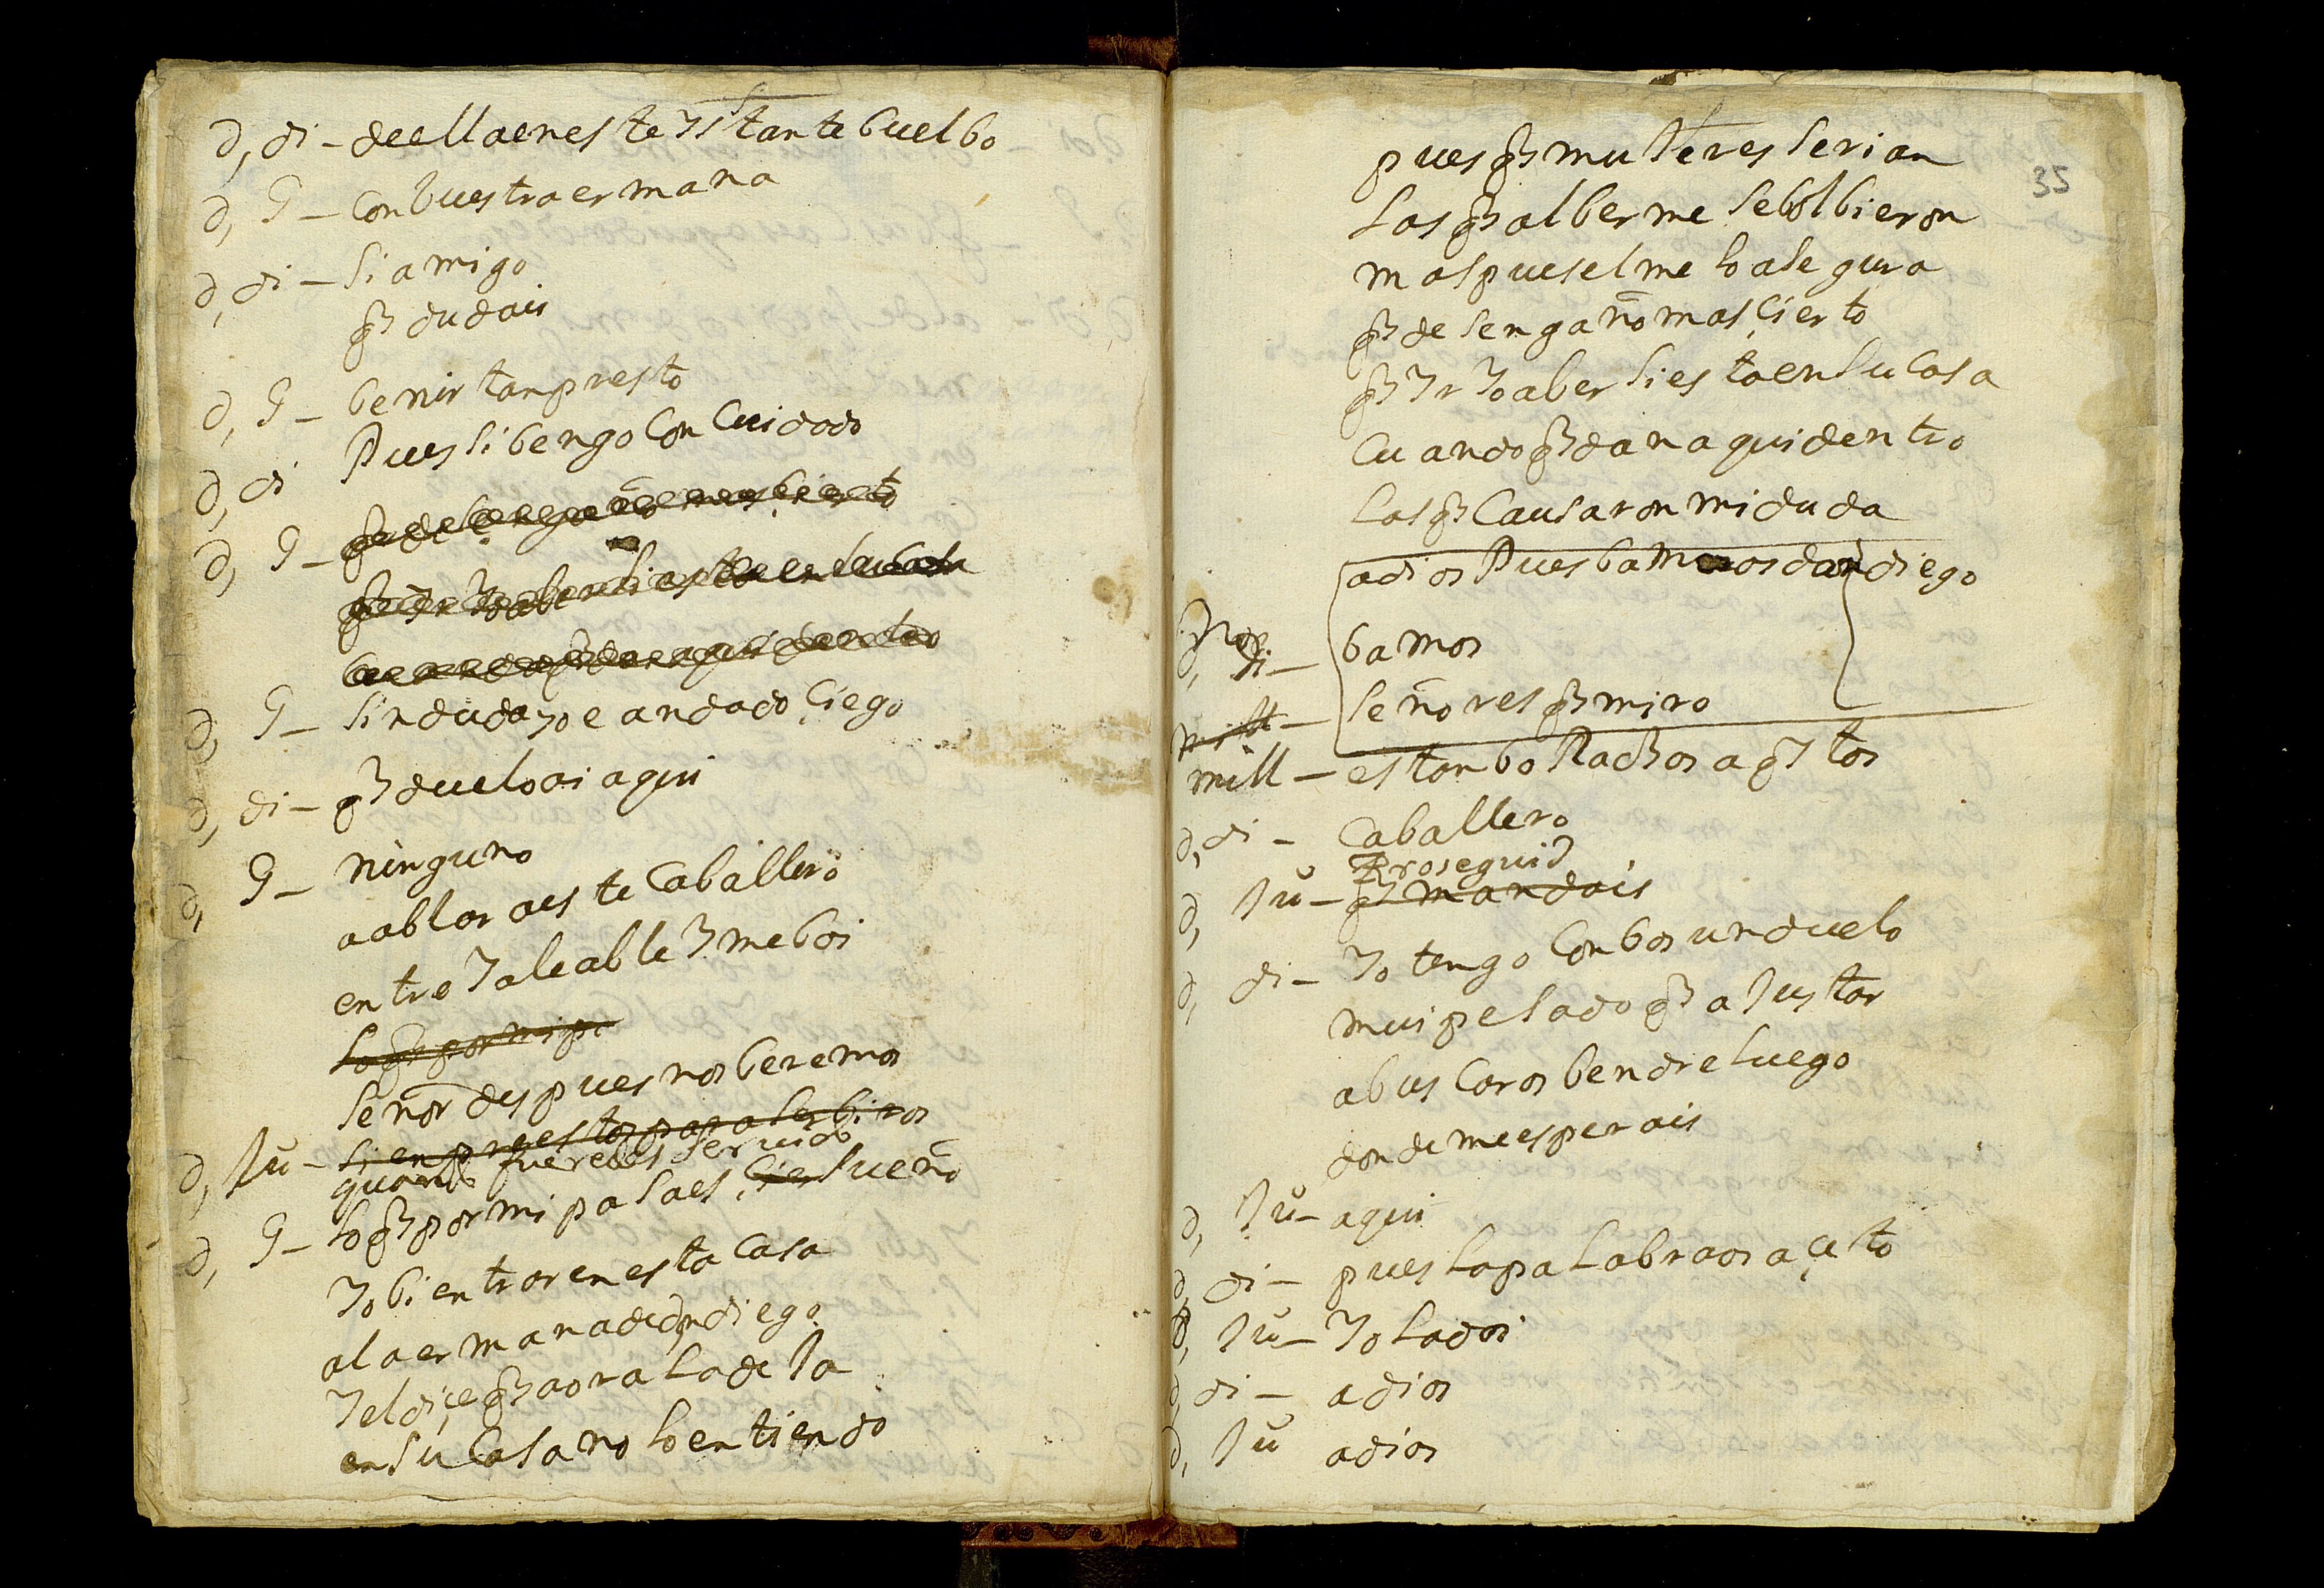 d, di - de ella en este ystante buelbo
d, G - con buestra ermana
d, di - si amigo
q̃ dudais
d, G - benir tan presto
d, di Pues si bengo con cuidado
d, G - q̃ desengaño mas çierto
q̃ yr yo a ber si esta en su casa
cuando q̃dan aqui dentro
d, G - sin duda yo e andado çiego
d, di - q̃ duelo ai aqui
d, G - ninguno
a ablar a este caballero
entre y ale able y me boi
lo q̃ por mi pa
señor despues nos beremos
d, Ju - siempre estoi para serbiros
quando fueredes seruido
d, G - lo q̃ por mi pasa es sueño
yo bi entrar en esta casa
a la ermana de don diego
y el diçe q̃ aora la deja
en su casa no lo entiendo
35
pues q̃ mujeres serian
las q̃ al berme se bolbieron
mas pues el me lo asegura
q̃ desengaño mas çierto
q̃ yr yo a ber si esta en su casa
cuando q̃dan aqui dentro
las q̃ causaron mi duda
adios Pues bamonos don diego
d, di - bamos
señores q̃ miro
mill - estan boRachos aq̃stos
d, di - caballero
Proseguid
d, Ju - q̃ mandais
d, di - yo tengo con bos un duelo
mui pesado q̃ ajustar
a buscaros bendre luego
donde me esperais
d, Ju - aqui
d, di - pues la palabra os açeto
d, Ju - yo la doi
d, di - adios
d, Ju adios